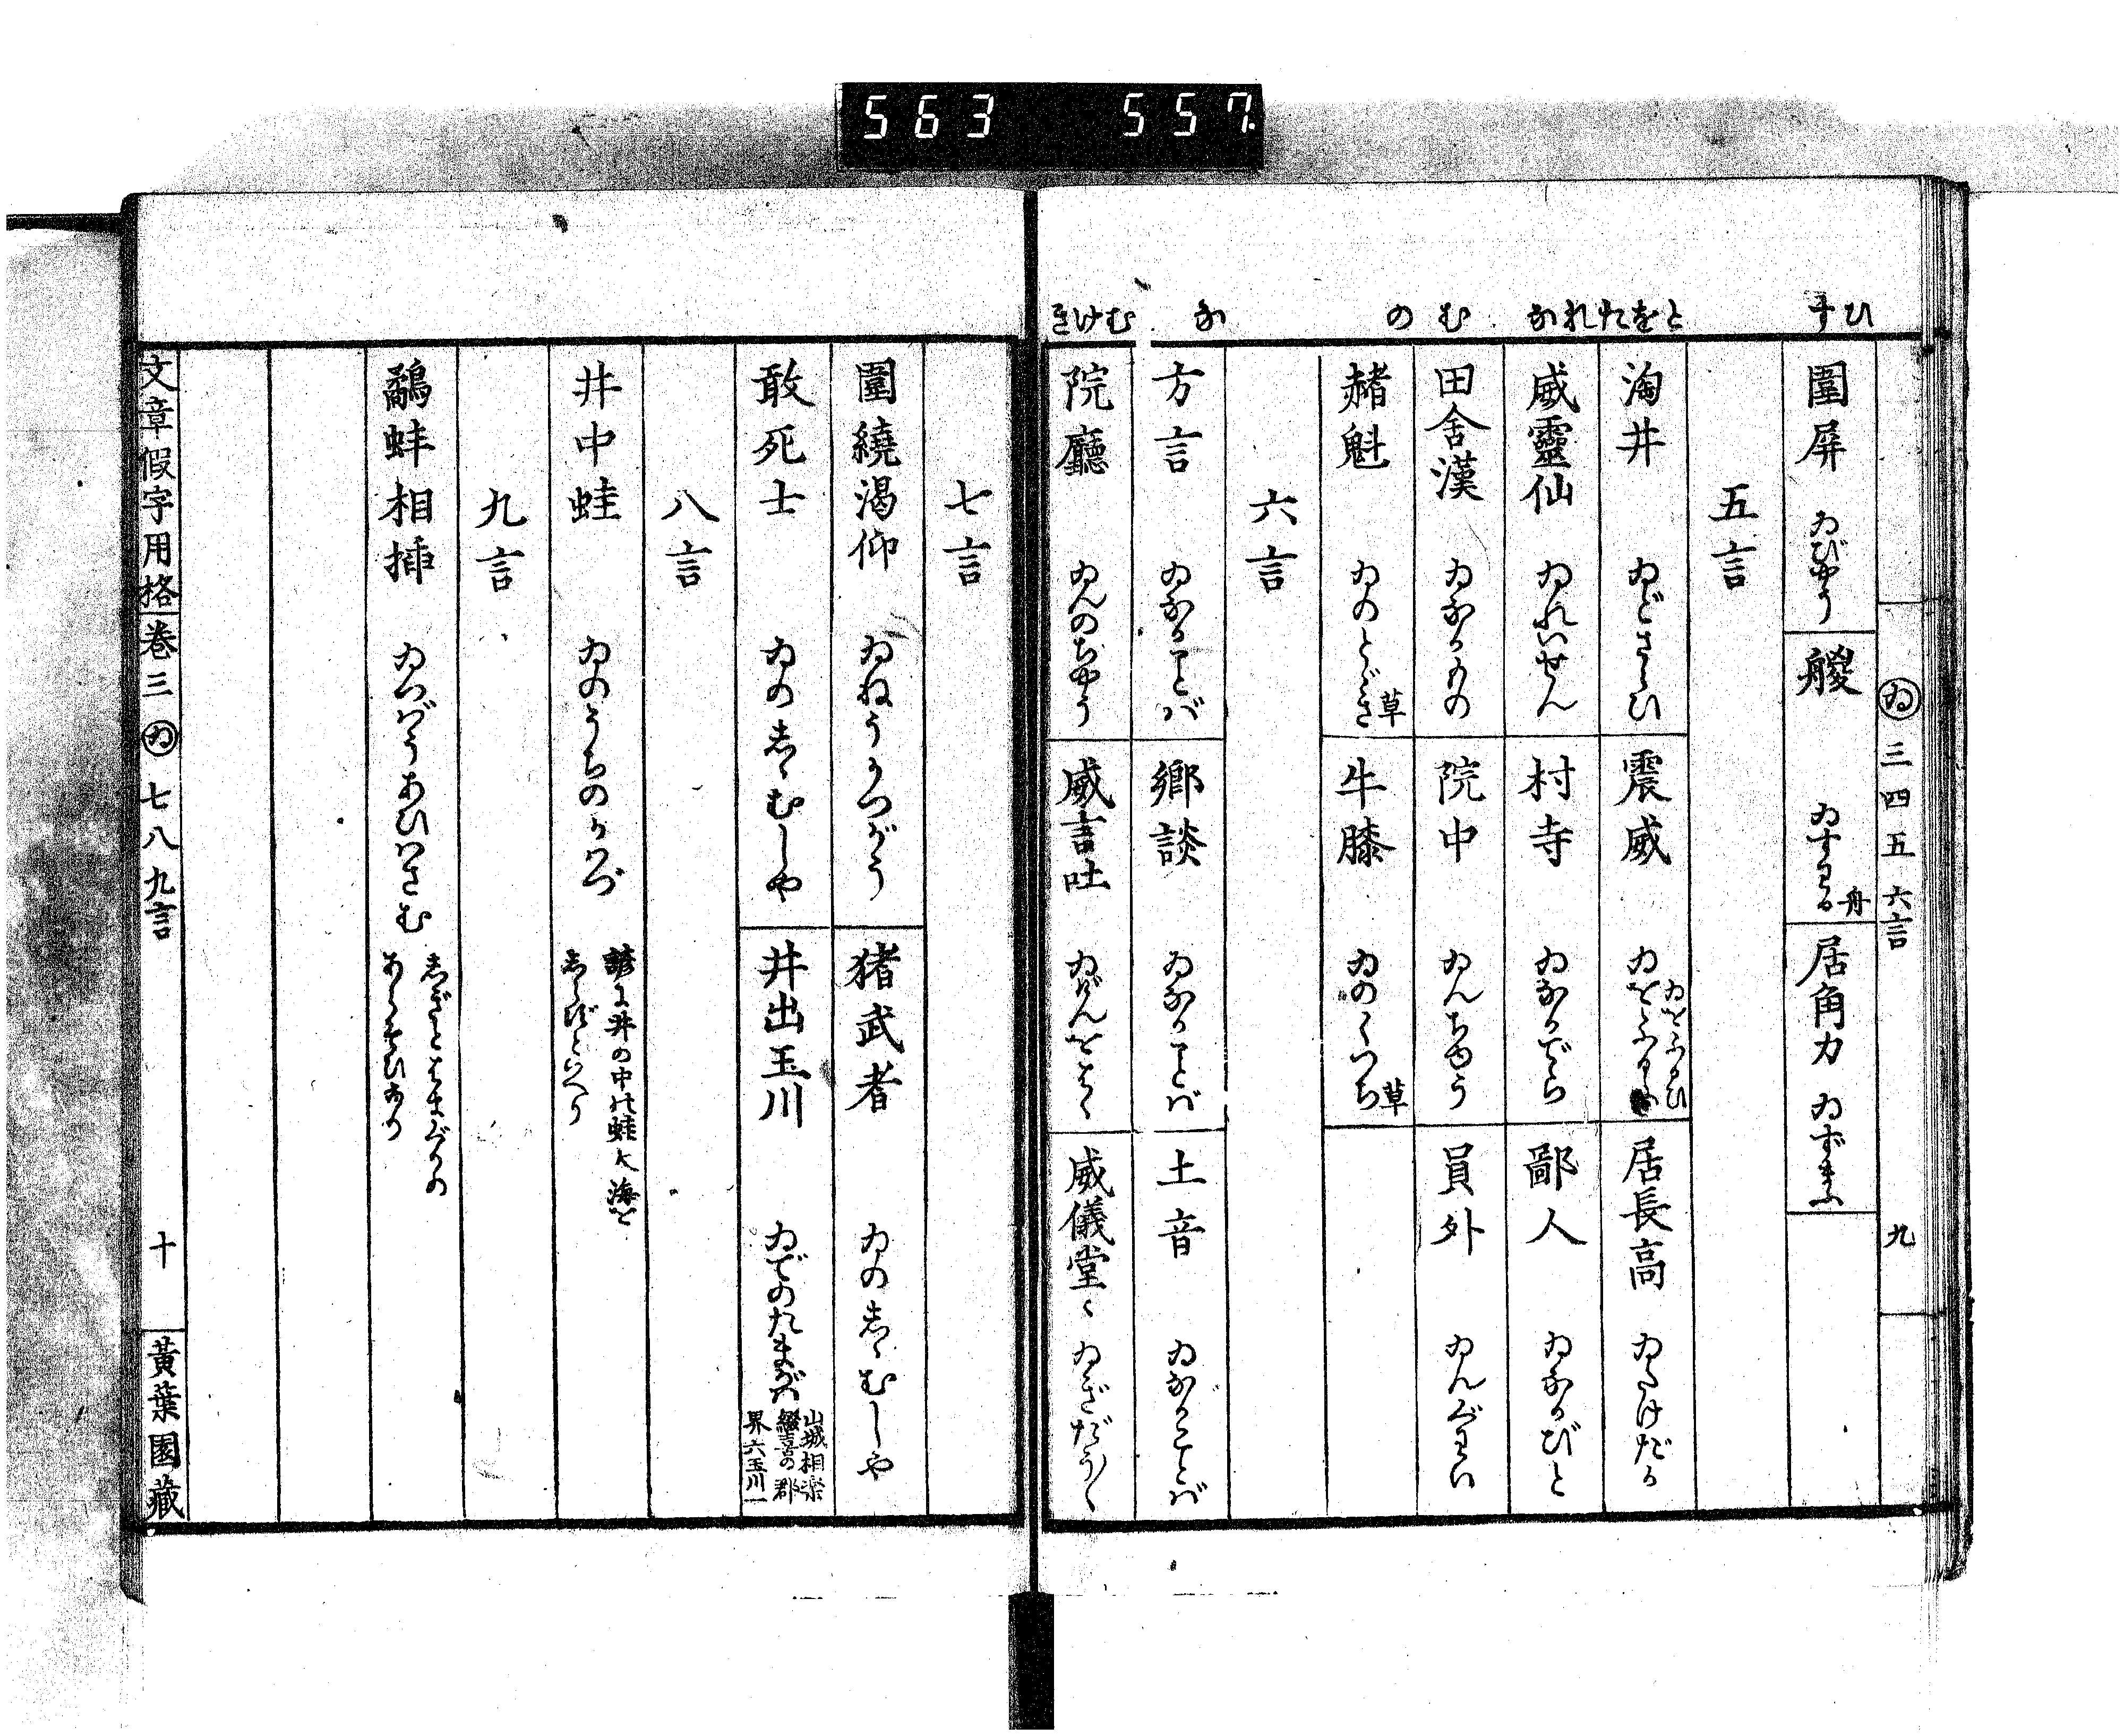 563 557.
ひす とをたれか むの か むけき
ゐ 三四五六言 九
圍屏 ゐびやう 艐 ゐすわる 舟 居角力 ゐずまふ
五言
淘井 ゐどさらひ 震威 ゐをふるふ ゐをふるひ 居長高 ゐたけだか
威靈仙 ゐれいせん 村寺 ゐなかでら 鄙人 ゐなかびと
田舍漢 ゐなかもの 院中 ゐんちゆう 員外 ゐんぐわい
赭魁 ゐのとゞき 草 牛膝 ゐのくつち 草
六言
方言 ゐなかことば 郷談 ゐなかことば 土音 ゐなかことば
院廳 ゐんのちやう 威言吐 ゐげんをはく 威儀堂〻 ゐぎだう〳〵
七言
圍繞渇仰 ゐねうかつがう 猪武者 ゐのしゝむしや
敢死士 ゐのしゝむしや 井出玉川 ゐでのたまがは 山城相樂 綴喜の郡 界六玉川一
八言
井中蛙 ゐのうちのかはづ 諺に井の中の蛙大海を しらずといへり
九言
鷸蚌相挿 ゐつばうあひはさむ しぎとはまぐりの あらそひなり
文章假字用格 巻三 ゐ 七八九言 十 黄葉園藏